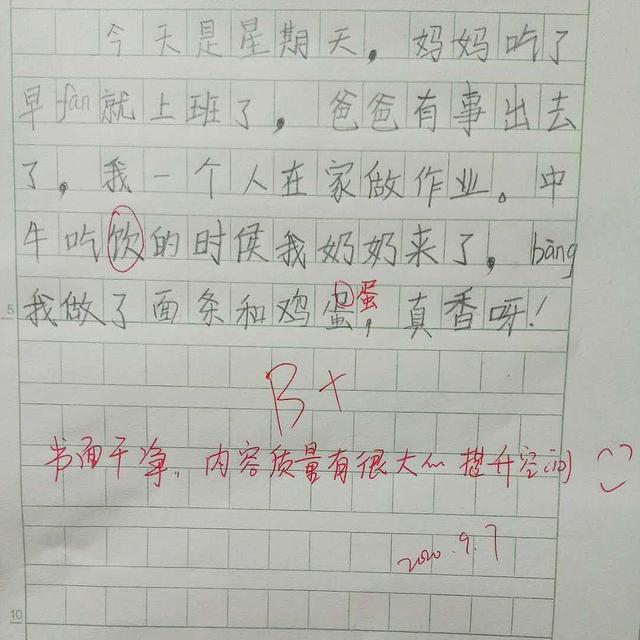 今天是星期天，妈妈吃了
早fan就上班了，爸爸有事出去
了，我一个人在家做作业。中
牛吃饮的时侯我奶奶来了，bāng
我做了面条和鸡蛋，真香呀！
蛋
B+
书面干净，内容质量有很大的提升空间
2020.9.7
5
10